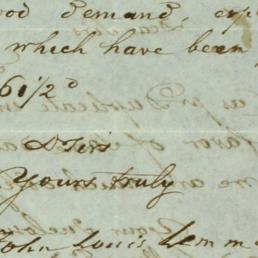 ood demand, exp
which have been
6 1/2 d
D Sirs
Yours truly
John Louis Lemm